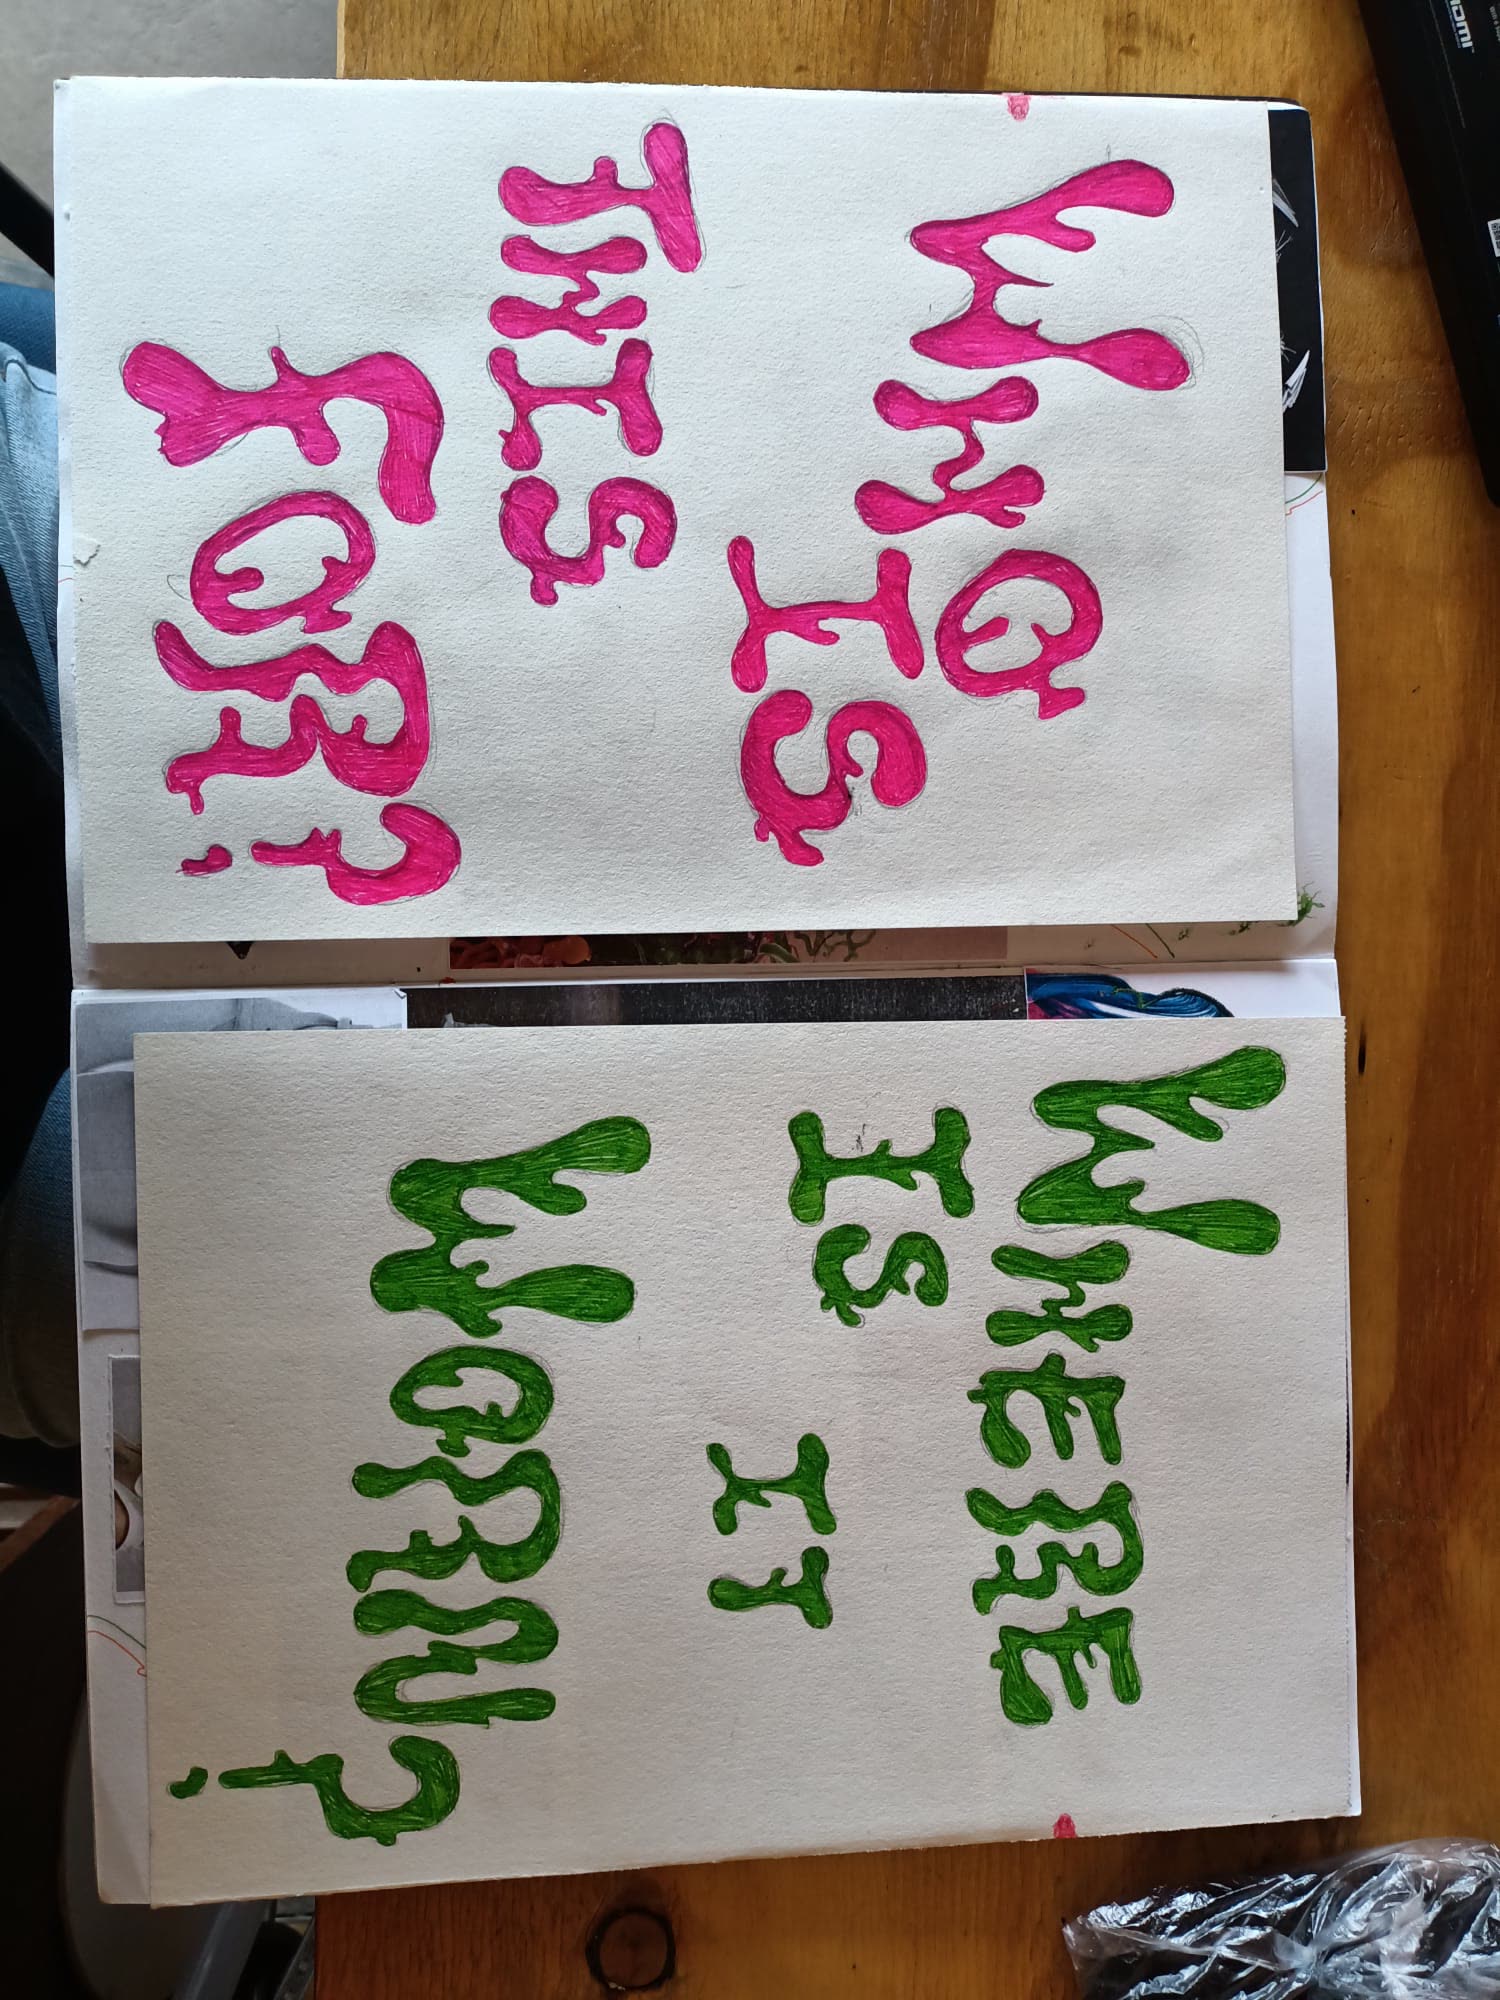 WHO
IS
THIS
FOR?
WHERE
IS
IT
WORN?